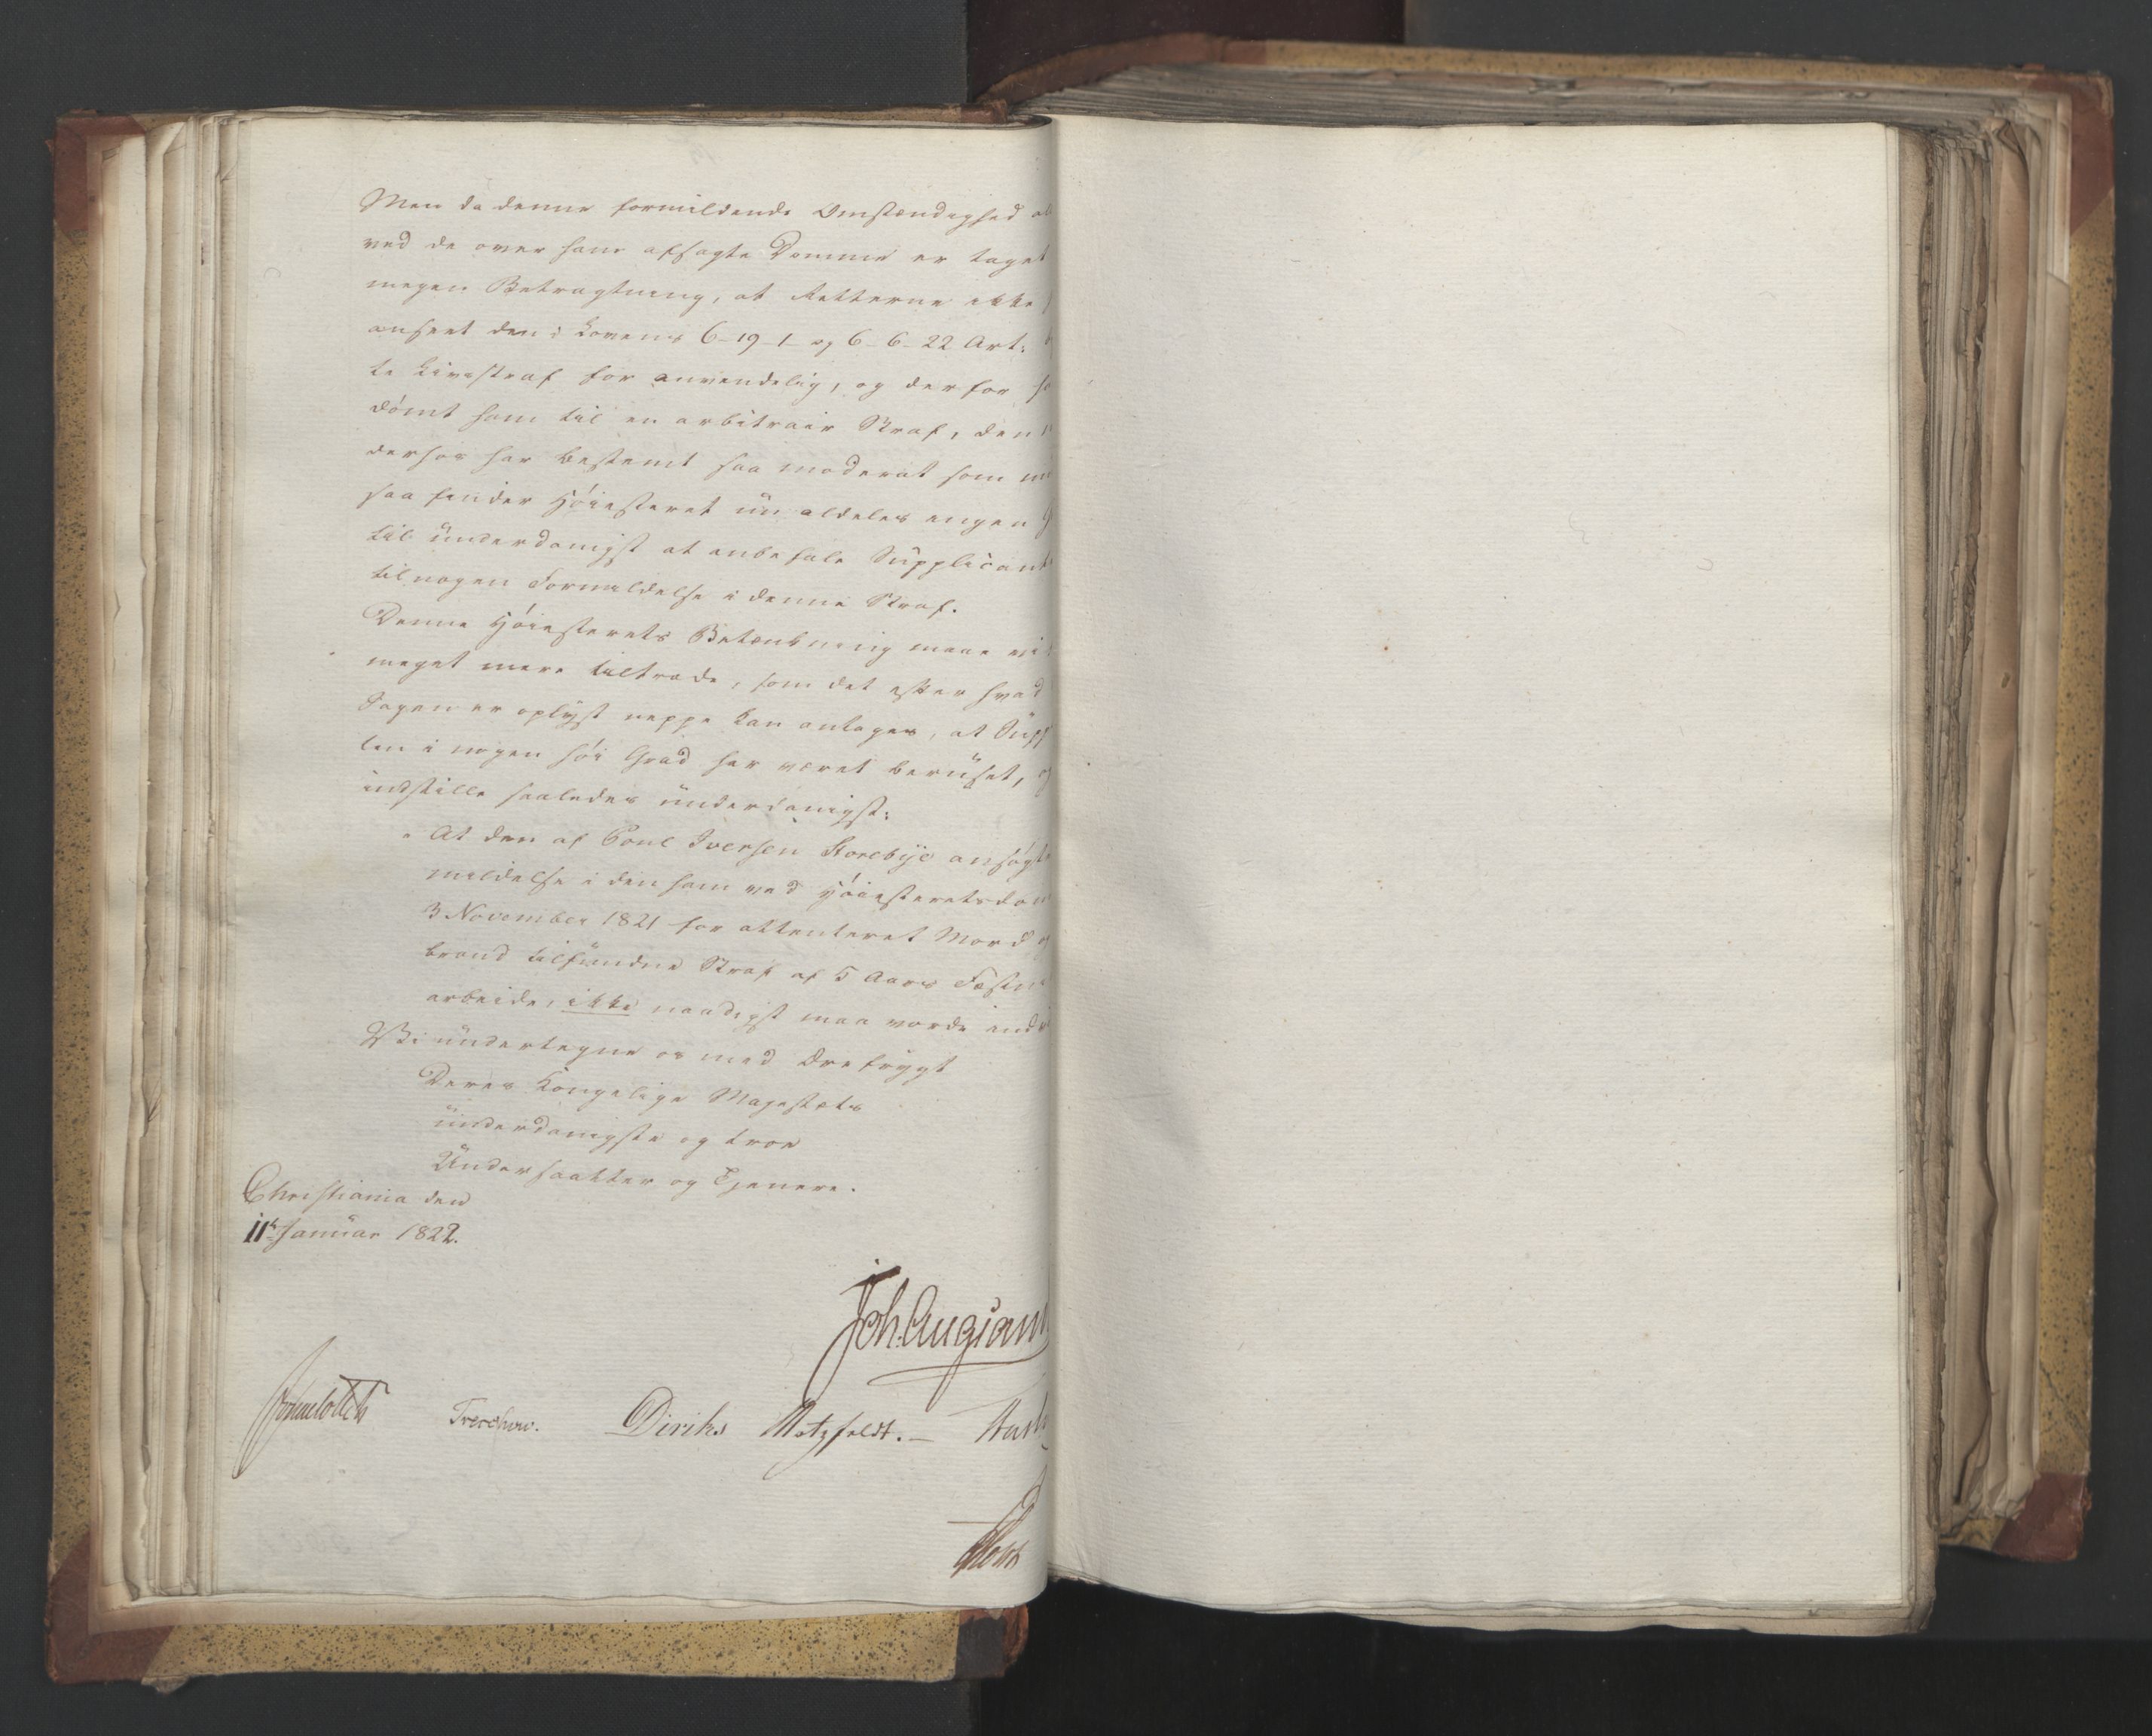 Men da denne formildende Omstændighed al
ved de over ham afsagte Domme er taget
megen Betragtning, at Retterne ikke
anseet den i Lovens 6-19-1 og 6-6-22 Art:
te Livsstraf for anvendelig, og derfor ha
dömt ham til en arbitrair Straf, den
derhos har bestemt saa moderat som
saa finder Höiesteret ün aldeles ingen
til ünderdanigst at anbefale Süpplicant
til nogen Formildelse i denne Straf.
Denne Höiesterets Betænkning maae vi
meget mere tiltræde, som det efter hvad
Sagen er oplyst neppe kan antages, at Süpp
ten i nogen höi Grad har været berüset, og
indstille saaledes ünderdanigst:
"At den af Poul Iversen Storebye ansögte
mildelse i den ham ved Höiesteretsdom
3 November 1821 for attenteret Mord og
brand tilfündne Straf af 5 Aars Fæstn
arbeide, ikke naadigst maa vorde ind
Vi ündertegne os med Ærefrygt
Deres Kongelige Majestæts
ünderdanigste og troe
Undersaatter og Tjenere.
Christiania den
11te Januar 1822.
Joh. Aug: San
Sommerfeldt Treschow. Diriks Motzfeldt.
Holst